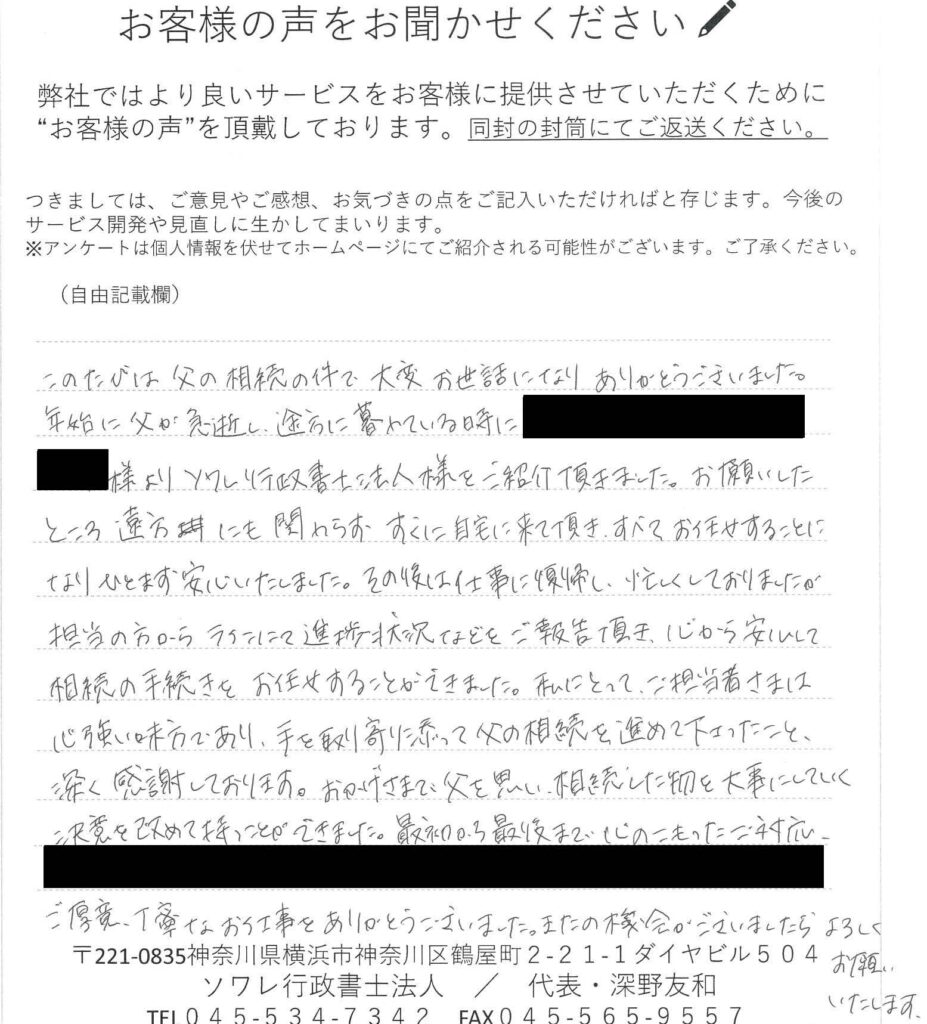 お客様の声をお聞かせください
弊社ではより良いサービスをお客様に提供させていただくために
“お客様の声”を頂戴しております。同封の封筒にてご返送ください。
つきましては、ご意見やご感想、お気づきの点をご記入いただければと存じます。今後の
サービス開発や見直しに生かしてまいります。
※アンケートは個人情報を伏せてホームページにてご紹介される可能性がございます。ご了承ください。
（自由記載欄）
このたびは父の相続の件で大変お世話になりありがとうございました。
年始に父が急逝し、途方に暮れている時に
様よりソワレ行政書士法人様をご紹介頂きました。お願いした
ところ遠方にも関わらずすぐに自宅に来て頂き、すべてお任せすることに
なりひとまず安心いたしました。その後は仕事に復帰し、忙しくしておりましたが
担当の方からラインにて進捗状況などをご報告頂き、心から安心して
相続の手続きをお任せすることができました。私にとって、ご担当者さまは
心強い味方であり、手を取り寄り添って父の相続を進めて下さったこと、
深く感謝しております。おかげさまで父を思い、相続した物を大事にしていく
決意を改めて持つことができました。最初から最後まで心のこもったご対応、
ご厚意、丁寧なお仕事をありがとうございました。またの機会がございましたらよろしく
お願い
いたします。
〒221-0835神奈川県横浜市神奈川区鶴屋町２-２１-１ダイヤビル５０４
ソワレ行政書士法人　／　代表・深野友和
TEL０４５-５３４-７３４２　FAX０４５-５６５-９５５７